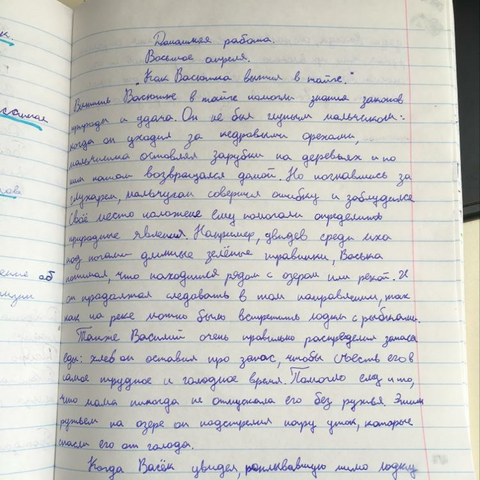 к.
Домашняя работа.
Восьмое апреля.
"Как Васютка выжил в тайге."
Выжить Васютке в тайге помогли знания законов
природы и удача. Он не был глупым мальчиком:
когда он уходил за кедровыми орехами,
мальчишка оставлял зарубки на деревьях и по
ним потом возвращался домой. Но погнавшись за
глухарём, мальчуган совершил ошибку и заблудился
Своё место положение ему помогали определить
природные явления. Например, увидев среди мха
под ногами длинные зелёные травинки, Васька
понимал, что находится рядом с озером или рекой. И
он продолжал следовать в том направлении, так
как на реке можно было встретить лодки с рыбаками.
Также Василий очень правильно распределил запасы
еды: хлеб он оставил про запас, чтобы съесть его в
самое трудное и голодное время. Помогло ему и то,
что мама никогда не отпускала его без ружья. Этим
ружьём на озере он подстрелил пару уток, которые
спасли его от голода.
Когда Васёк увидел, проплывавшую мимо лодку
ение об
изни